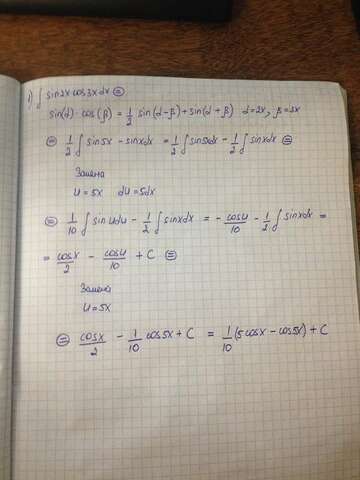 1) ∫ sin2x cos3x dx ⊜
sin(α)·cos(β) = 1/2 sin(α-β) + sin(α+β) α=2x, β=3x
⊜ 1/2 ∫ sin5x - sinxdx = 1/2 ∫ sin5xdx - 1/2 ∫ sinxdx ⊜
Замена
u = 5x du = 5dx
⊜ 1/10 ∫ sin u du - 1/2 ∫ sinxdx = - cosu/10 - 1/2 ∫ sinxdx =
= cosx/2 - cosu/10 + C ⊜
Замена
u = 5x
⊜ cosx/2 - 1/10 cos5x + C = 1/10 (5cosx - cos5x) + C